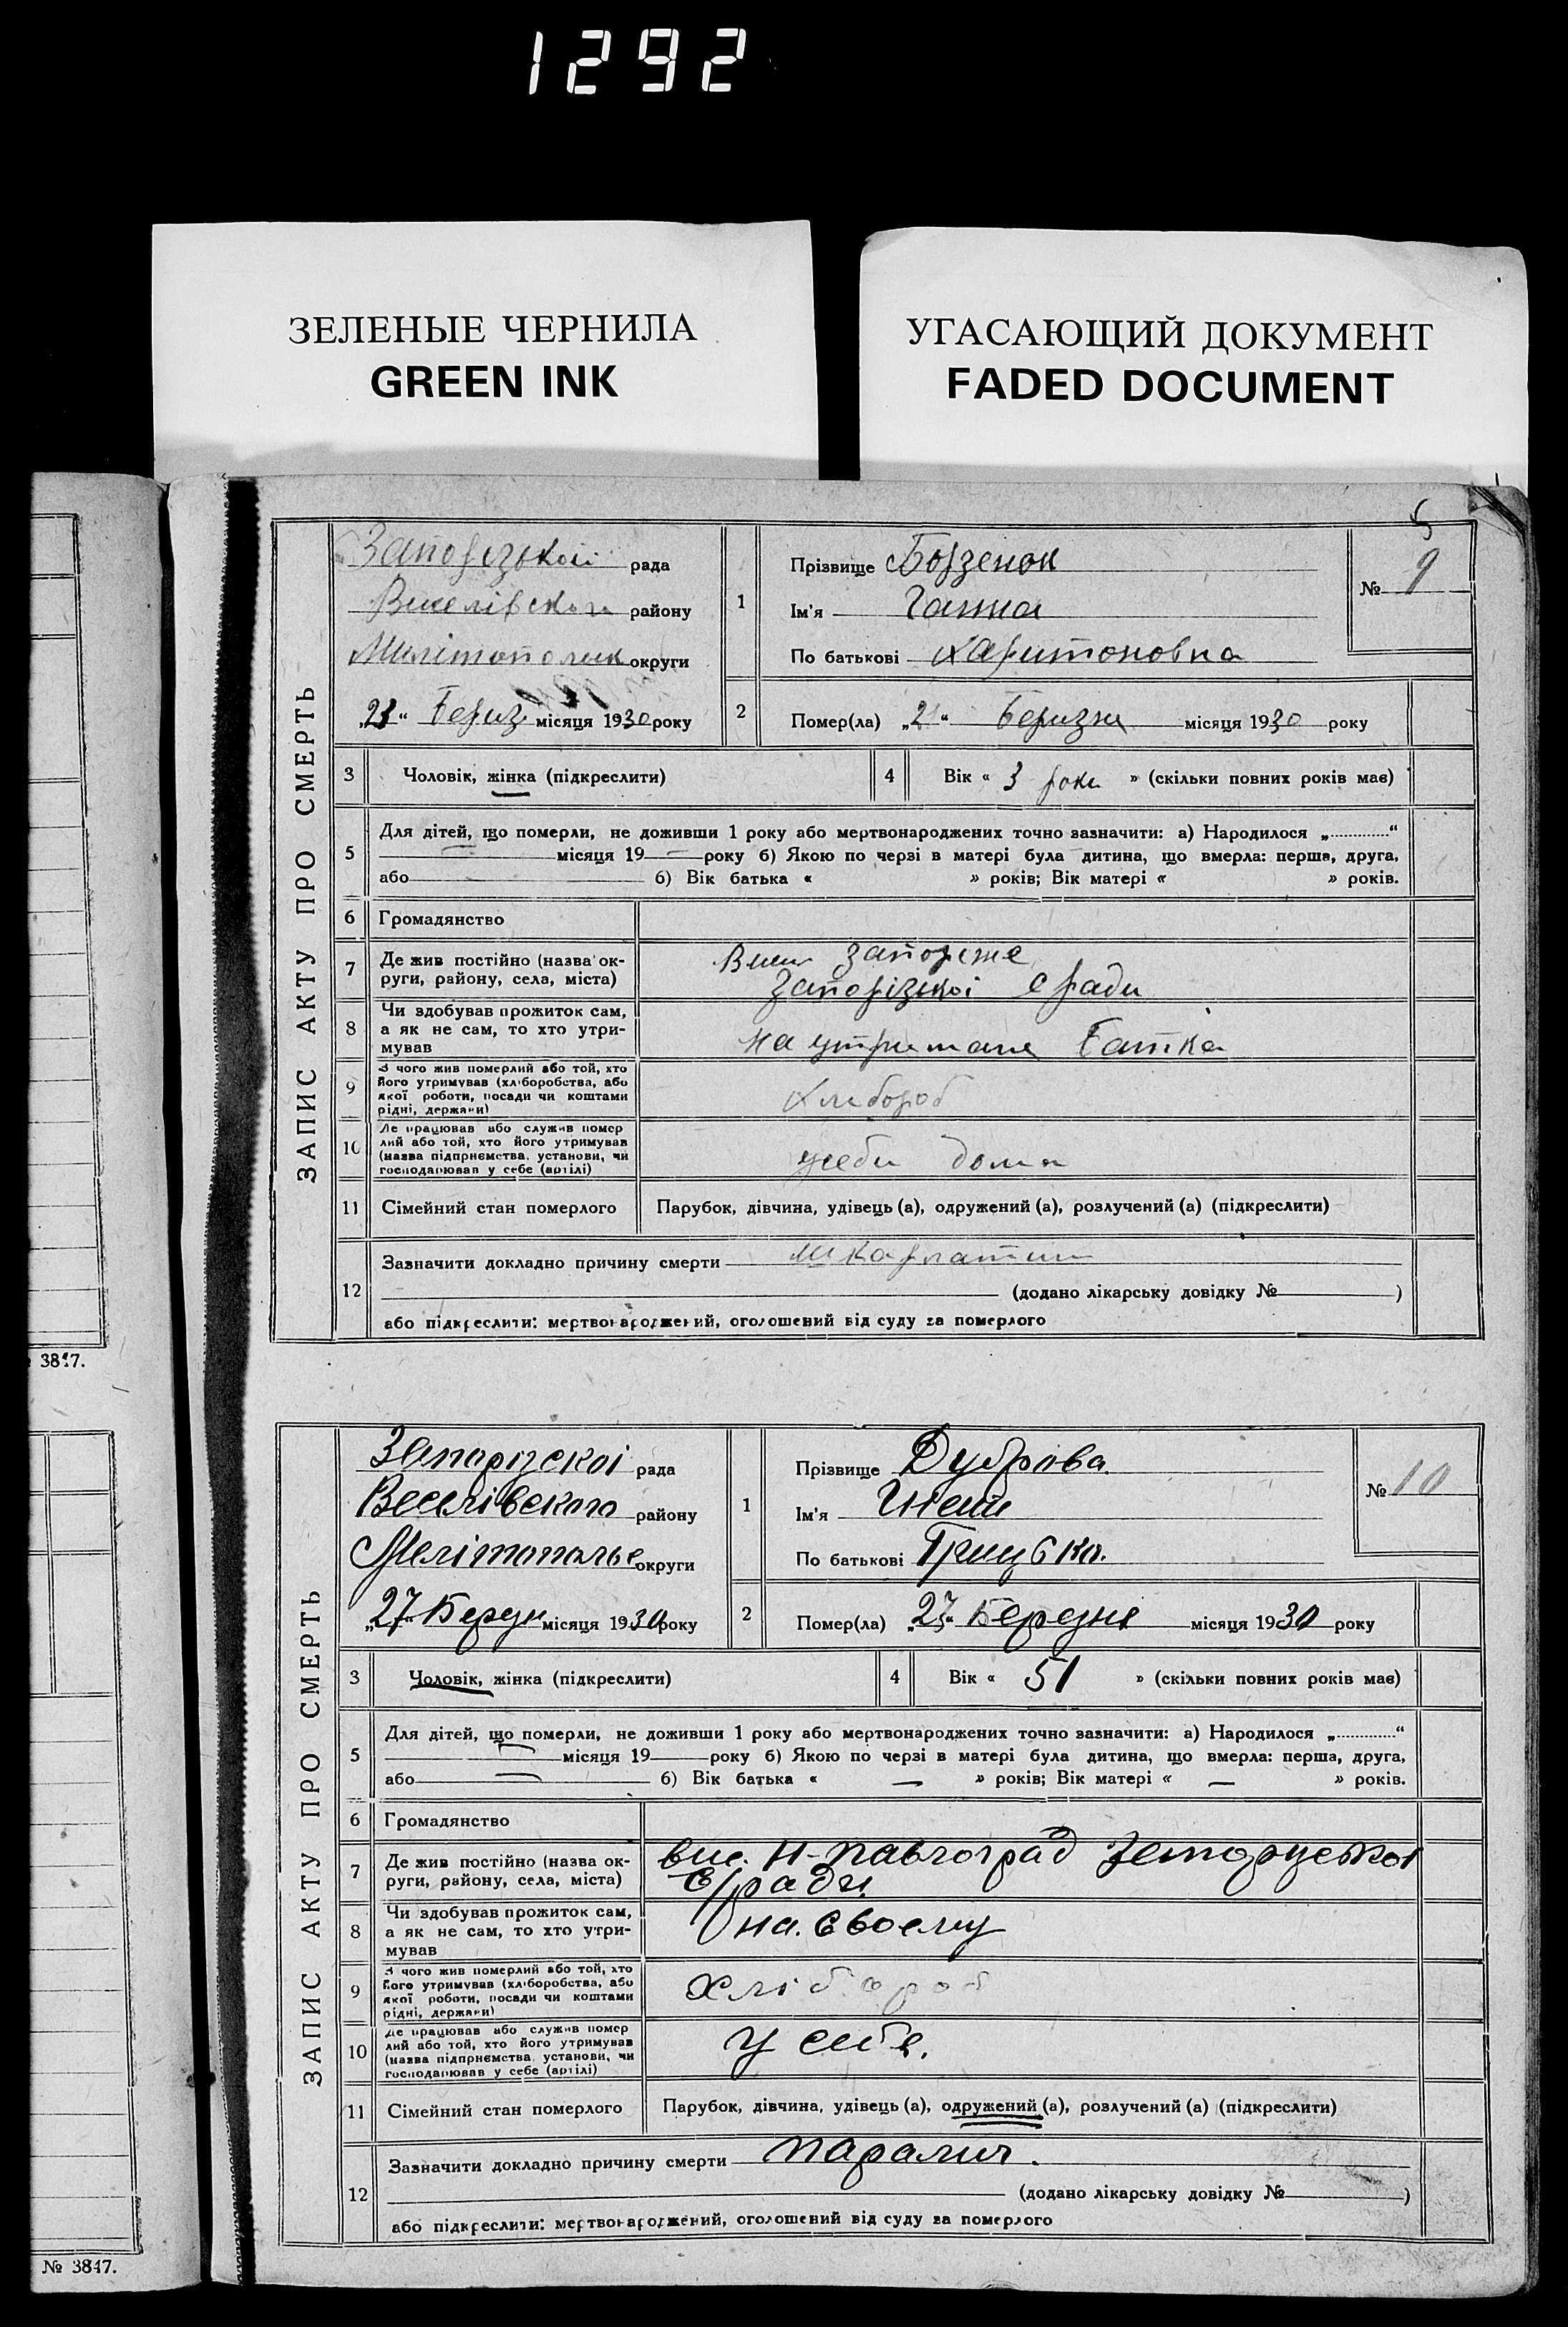 1292
ЗЕЛЕНЫЕ ЧЕРНИЛА
GREEN INK
УГАСАЮЩИЙ ДОКУМЕНТ
FADED DOCUMENT
5
ЗАПИС АКТУ ПРО СМЕРТЬ
Запорізької рада
Виселівского району
округи
„23“ Бериз місяця 1930 року
1
Прізвище Борзенок
Ім'я Ганна
По батькові Харитоновна
№ 9
2
Помер(ла) „21“ Беризня місяця 1930 року
3 Чоловік, жінка (підкреслити)
4 Вік « 3 роки » (скільки повних років має)
5 Для дітей, що померли, не доживши 1 року або мертвонароджених точно зазначити: а) Народилося „............“
місяця 19 року б) Якою по черзі в матері була дитина, що вмерла: перша, друга,
або б) Вік батька « » років; Вік матері « » років.
6 Громадянство
7 Де жив постійно (назва ок-
руги, району, села, міста)
Запоріже
Запорізкоі с ради
8 Чи здобував прожиток сам,
а як не сам, то хто утри-
мував
на утримане Батка
9 З чого жив померлий або той, хто
його утримував (хліборобства, або
якої роботи, посади чи коштами
рідні, держави)
Хлибороб
10 Де працював або служив помер
лий або той, хто його утримував
(назва підприємства, установи, чи
господарював у себе (артілі)
усеби дома
11 Сімейний стан померлого
Парубок, дівчина, удівець (а), одружений (а), розлучений (а) (підкреслити)
12 Зазначити докладно причину смерти шкарлатин
(додано лікарську довідку № )
або підкреслити: мертвонароджений, оголошений від суду за померлого
3817.
ЗАПИС АКТУ ПРО СМЕРТЬ
Запорізскоі рада
Веселівского району
Мелітополье округи
„27“ Березн місяця 1930 року
1
Прізвище Дуброва.
Ім'я Гнат
По батькові
№ 10
2
Помер(ла) „27“ Березня місяця 1930 року
3 Чоловік, жінка (підкреслити)
4 Вік « 51 » (скільки повних років має)
5 Для дітей, що померли, не доживши 1 року або мертвонароджених точно зазначити: а) Народилося „............“
місяця 19 року б) Якою по черзі в матері була дитина, що вмерла: перша, друга,
або — б) Вік батька « — » років; Вік матері « — » років.
6 Громадянство
7 Де жив постійно (назва ок-
руги, району, села, міста)
вис. Н-Павлоград Запорізской
с/ради.
8 Чи здобував прожиток сам,
а як не сам, то хто утри-
мував
на. своему
9 З чого жив померлий або той, хто
його утримував (хліборобства, або
якої роботи, посади чи коштами
рідні, держави)
хлібороб
10 Де працював або служив помер
лий або той, хто його утримував
(назва підприємства, установи, чи
господарював у себе (артілі)
у себе.
11 Сімейний стан померлого
Парубок, дівчина, удівець (а), одружений (а), розлучений (а) (підкреслити)
12 Зазначити докладно причину смерти паралич.
(додано лікарську довідку № )
або підкреслити: мертвонароджений, оголошений від суду за померлого
№ 3817.